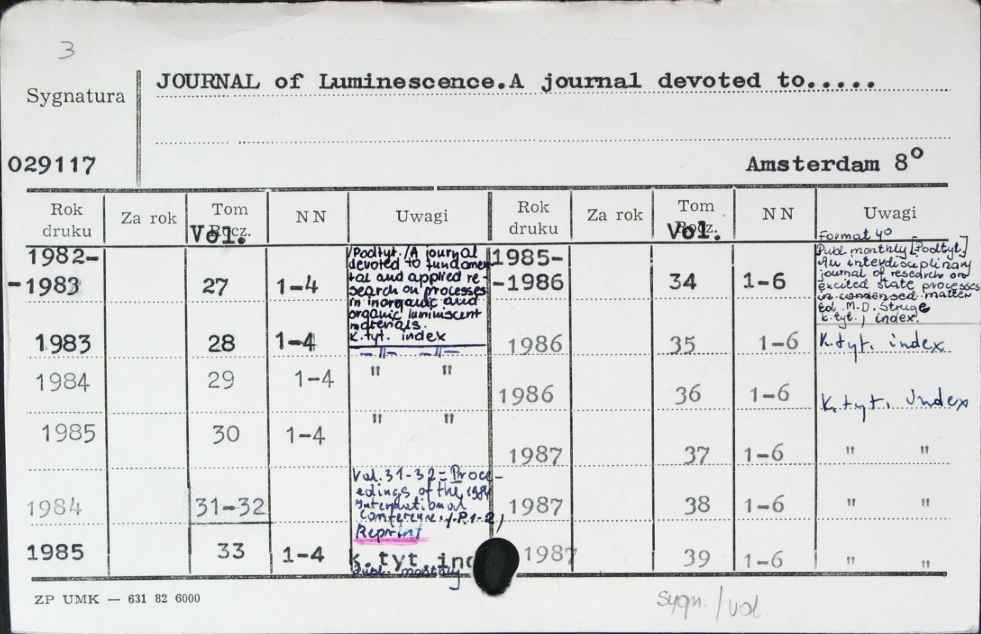 3
JOURNAL of Luminescence.A journal devoted to.....
Sygnatura
029117
Amsterdam 8°
Rok druku Za rok Tom Rocz. NN Uwagi Rok druku Za rok Tom Rocz. NN Uwagi
Vol. Vol.
1982-
-1983 27 1-4
/Podtyt./A journal
devoted to fundamen
tal and applied re
search on processes
in inorganic and
organic luminiscent
materials.
k.tyt. index
1983 28 1-4 -"- -"-
1984 29 1-4 " "
1985 30 1-4 " "
1984 31-32
Vol. 31-32 = Proce-
edings of the 1984
International
Conference./-P.1-2/
Reprint
1985 33 1-4 k.tyt ind
Publ. monthly
1985-
-1986 34 1-6
Format 4°
Publ monthly [Podtyt.]
An interdisciplinary
journal of research on
excited state processes
in condensed matter
ed. M.D. Sturge
k.tyt., index
1986 35 1-6 K.tyt. index
1986 36 1-6 K.tyt. Index
1987 37 1-6 " "
1987 38 1-6 " "
1987 39 1-6 " "
ZP UMK — 631 82 6000
Sygn./vol